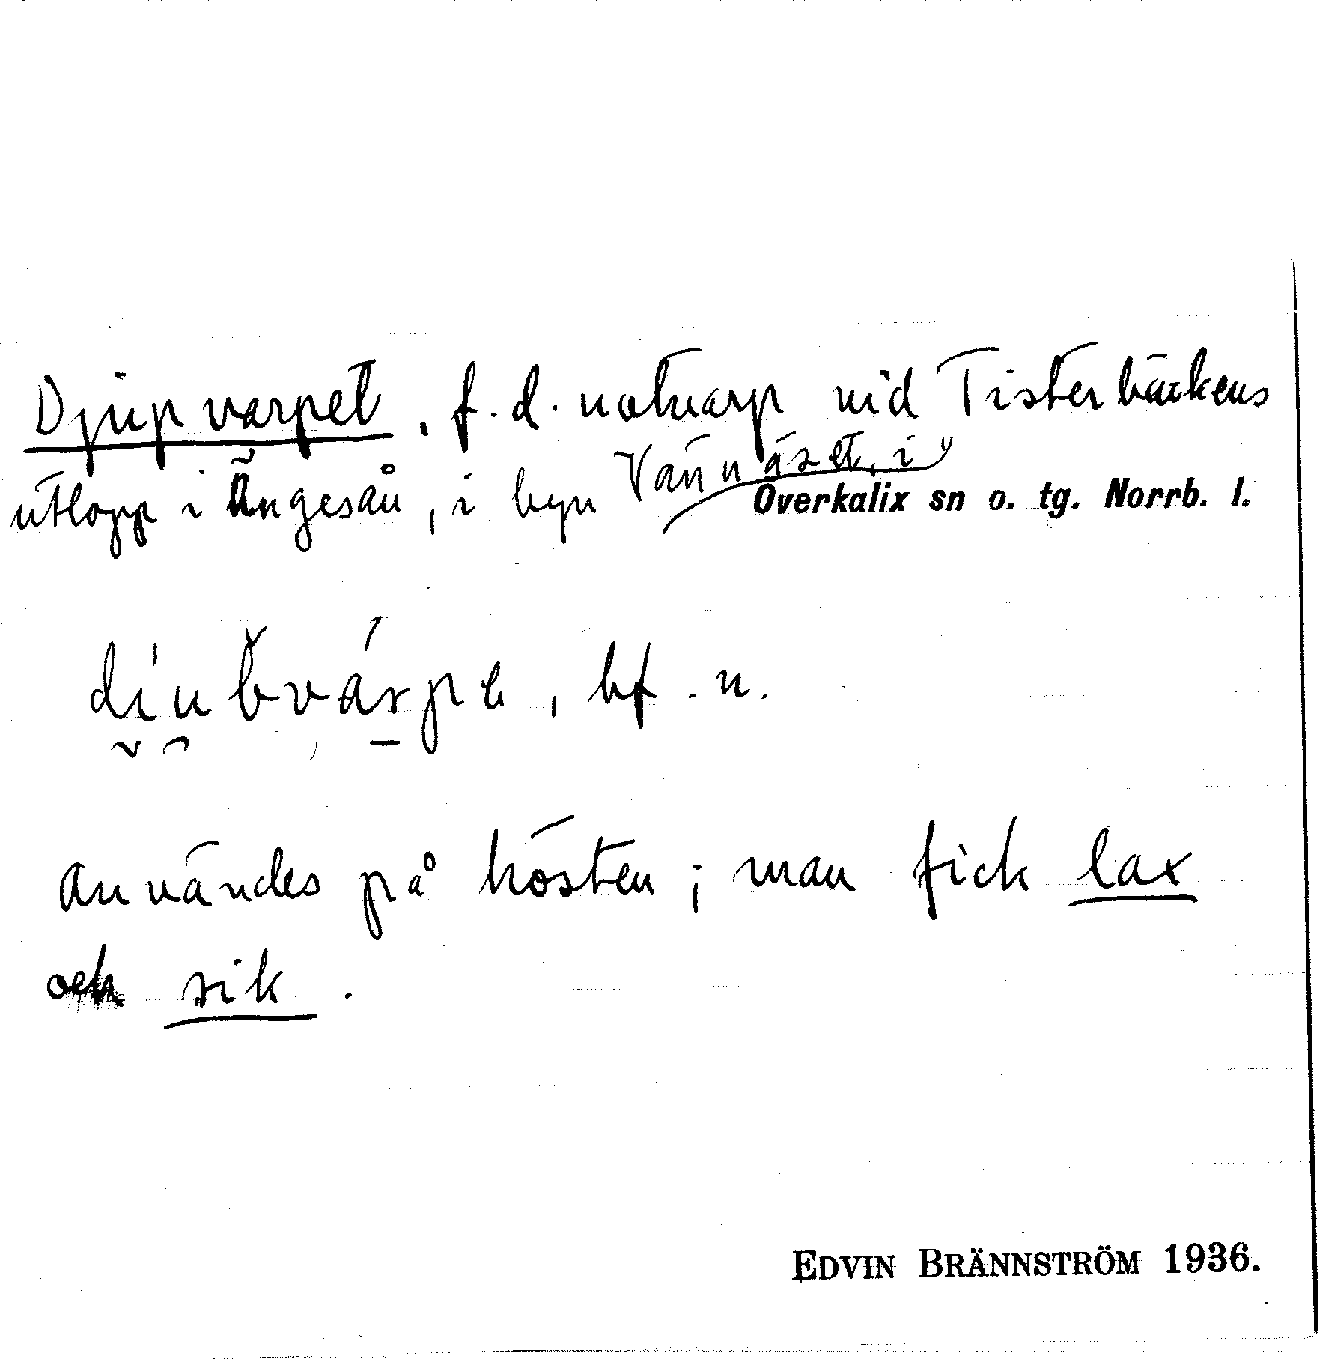 Djupvarpet, f.d. notvarp vid Tisterbäckens
utlopp i Ängesån, i byn Vännäset, i
Överkalix sn o. tg. Norrb. l.
bf. n.
användes på hösten; man fick lax
och sik.
EDVIN BRÄNNSTRÖM 1936.